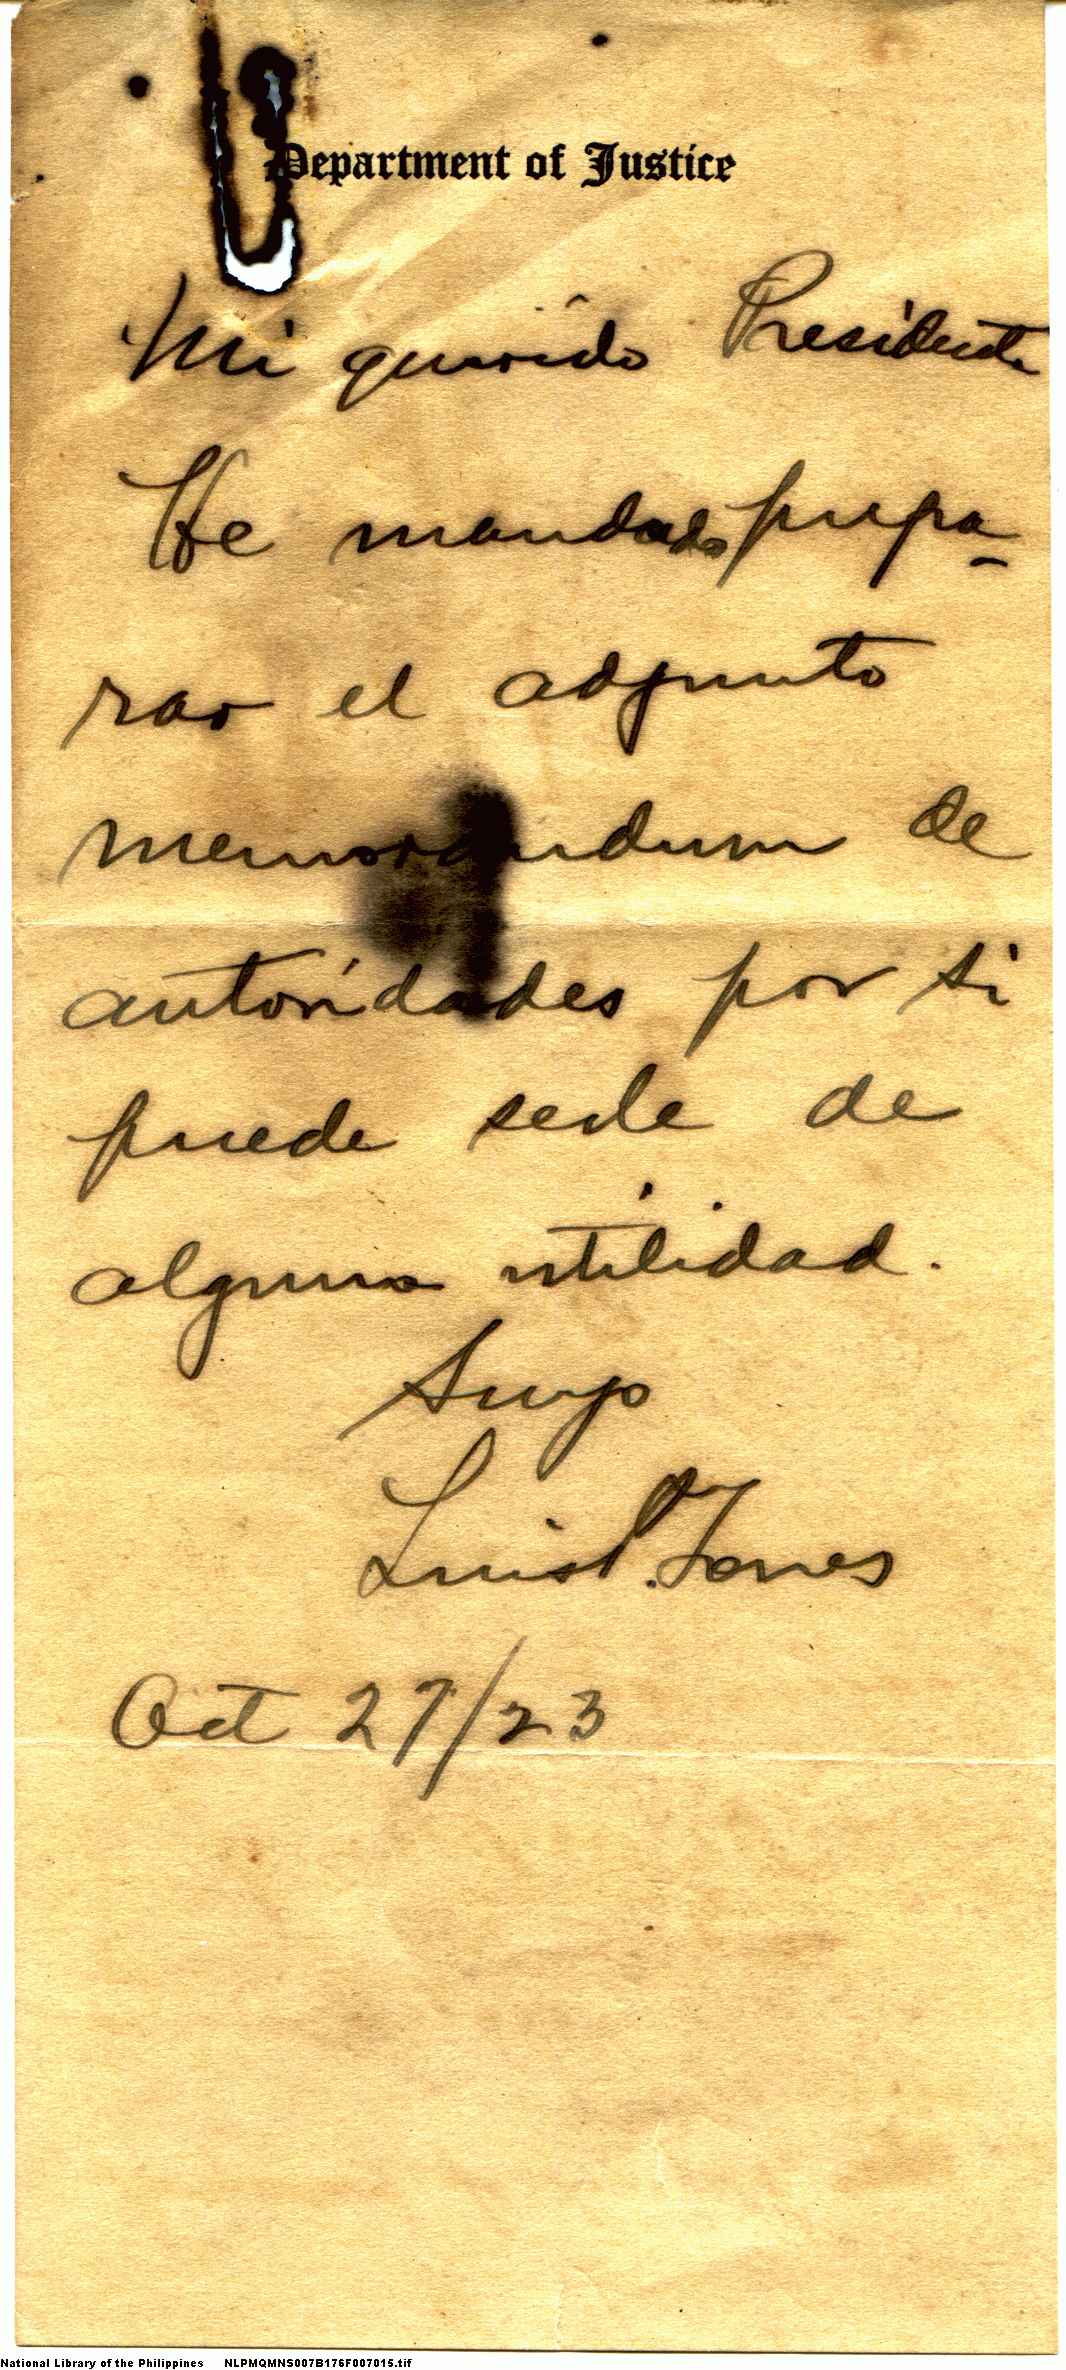 Department of Justice
Mi querido Presidente
He mandado prepa-
rar el adjunto
memorandum de
autoridades por si
puede serle de
alguna utilidad.
Suyo
Luis P. Torres
Oct 27/23
National Library of the Philippines NLPMQMNS007B176F007015.tif